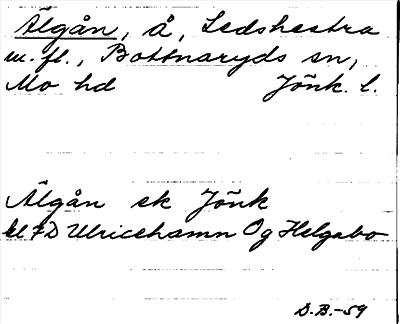 Älgån, å, Ledshestra
m.fl., Bottnaryds sn,
Mo hd Jönk. l.
Älgån ek Jönk
bl 7D Ulricehamn Og Helgabo
D.B.-59